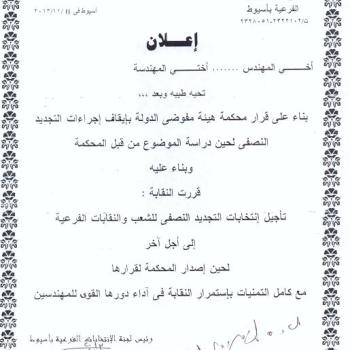 الفرعية بأسيوط
أسيوط فى ١١/ ٢٠١٣/١١
٢٣٢٨٠٥١-٢٣٢٢١٠٢/٥
إعــلان
أخــي المهندس ....... أختــي المهندسة
تحيه طيبه وبعد ،،،
بناء على قرار محكمة هيئة مفوضى الدولة بإيقاف إجراءات التجديد
النصفى لحين دراسة الموضوع من قبل المحكمة
وبناء عليه
قررت النقابة :
تأجيل إنتخابات التجديد النصفى للشعب والنقابات الفرعية
إلى أجل آخر
لحين إصدار المحكمة لقرارها
مع كامل التمنيات بإستمرار النقابة فى آداء دورها القوى للمهندسين
رئيس لجنة الإنتخابات الفرعية بأسيوط